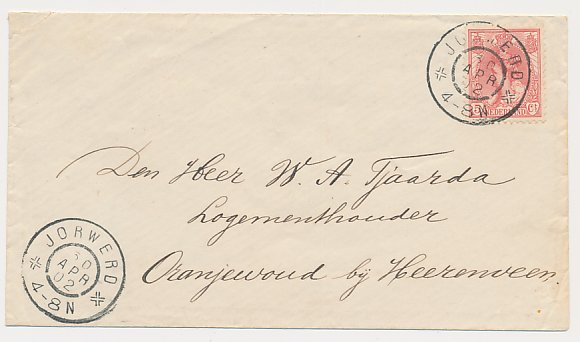 JORWERD
30
APR
02
4-8N
5 NEDERLAND Ct
Den Heer W. A. Tjaarda
Logementhouder
Oranjewoud bij Heerenveen.
JORWERD
30
APR
02
4-8N